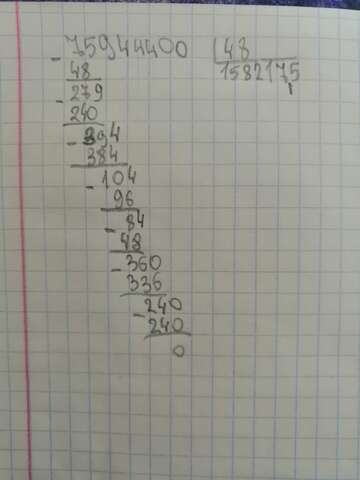 - 75944400 | 48
48 1582175
- 279
240
- 394
384
- 104
96
- 84
48
- 360
336
- 240
240
0